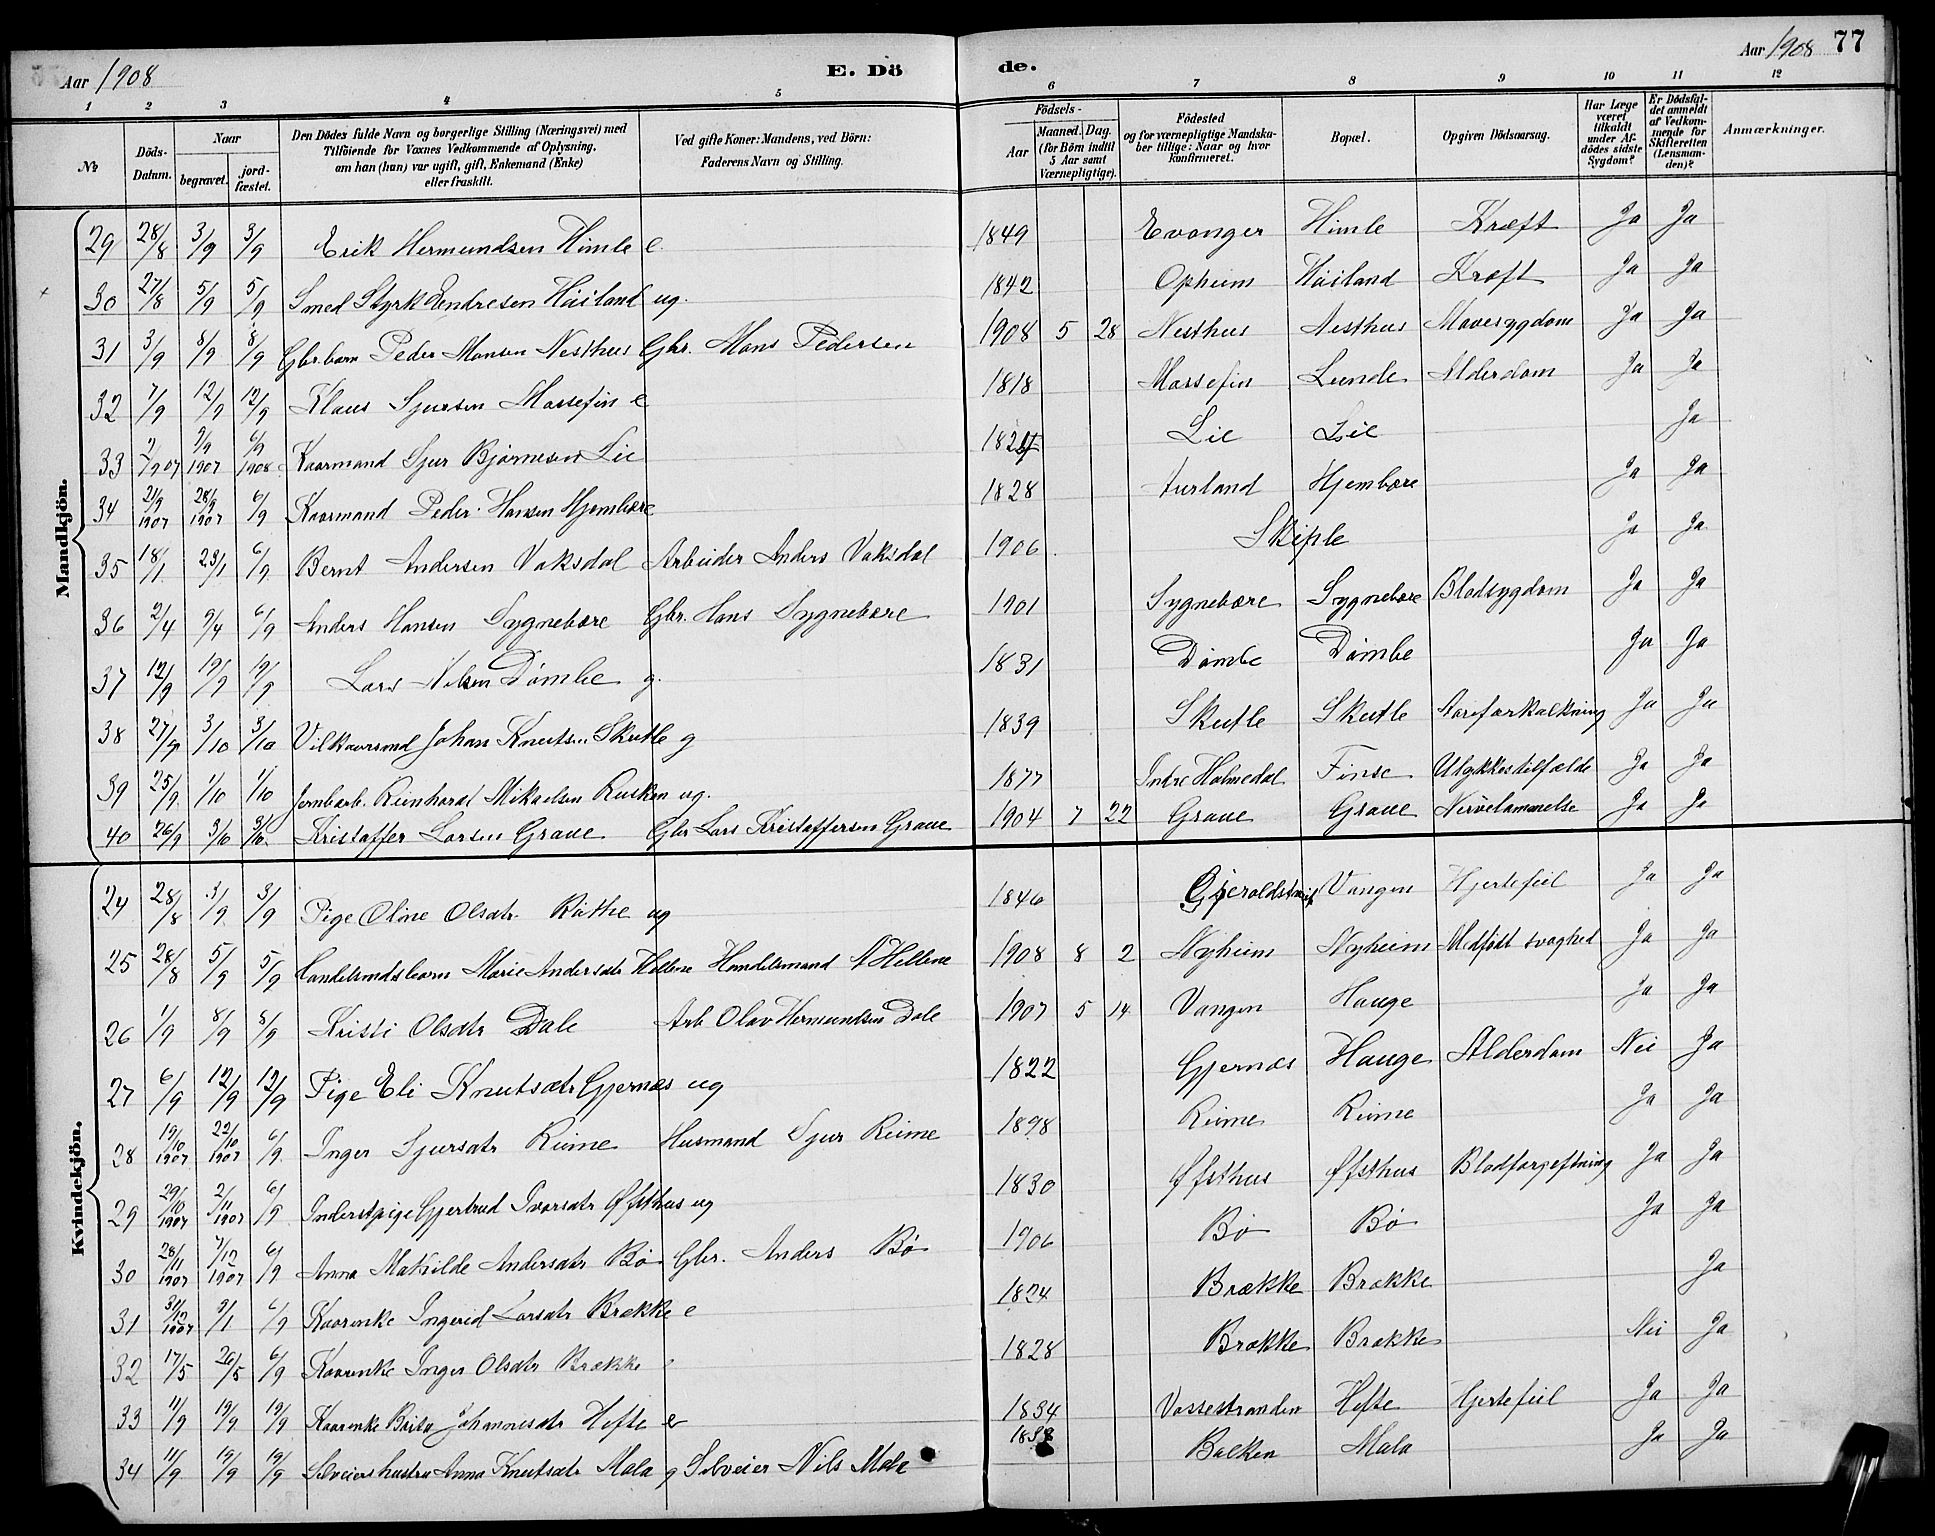 Aar 1908 E. Dö de. Aar 1908 77
1 2 3 4 5 6 7 8 9 10 11 12
No Döds-Datum. Naar begravet. jordfæstet. Den Dödes fulde Navn og borgerlige Stilling (Næringsvei) med Tilföiende for Voxnes Vedkommende af Oplysning, om han (hun) var ugift, gift, Enkemand (Enke) eller fraskilt. Ved gifte Koner: Mandens, ved Börn: Faderens Navn og Stilling. Födsels- Aar Maaned. Dag. (for Börn indtil 5 Aar samt Værnepligtige). Födested og for værnepligtige Mandskaber tillige: Naar og hvor konfirmeret. Bopæl. Opgiven Dödsaarsag. Har Læge været tilkaldt under Afdödes sidste Sygdom? Er Dödsfaldet anmeldt af Vedkommende for Skifteretten (Lensmanden)? Anmærkninger.
Mandkjön.
29 28/8 3/9 3/9 Erik Hermundsen Himle e 1849 Evanger Himle Kræft Ja Ja
30 27/8 5/9 5/9 Smed Styrk Endresen Háiland ug. 1842 Opheim Háiland Kræft Ja Ja
31 3/9 8/9 8/9 Gbr.barn Peder Monsen Nesthus Gbr. Mons Pedersen 1908 5 28 Nesthus Nesthus Mavesygdom Ja Ja
32 7/9 12/9 12/9 Klaus Sjursen Mossefin e 1818 Mossefin Lunde Alderdom Ja Ja
33 2/9 07 9/9 1907 6/9 1908 Kaarmand Sjur Bjørnesen Lie Lie Lie Ja
34 21/9 1907 28/9 1907 6/9 Kaarmand Peder Hansen Hjembære 1828 Aurland Hjembære Ja Ja
35 18/1 23/1 6/9 Bernt Andersen Vaksdal Arbeider Anders Vaksdal 1906 Skiple Ja Ja
36 2/4 9/4 6/9 Anders Hansen Sygnebære Gbr. Hans Sygnebære 1901 Sygnebære Sygnebære Blodsygdom Ja Ja
37 12/9 19/9 19/9 Lars Nilsen Dømbe g. 1831 Dømbe Dømbe Ja Ja
38 27/9 3/10 3/10 Vilkaarsmd Johan Knutsen Skutle g 1839 Skutle Skutle Aareforkalkning Ja Ja
39 25/9 1/10 1/10 Jernbarb. Reinhardt Mikaelsen Rusken ug. 1877 Indre Holmedal Finse Ulykkestilfælde Ja Ja
40 26/9 3/10 3/10 Kristoffer Larsen Graue Gbr Lars Kristoffersen Graue 1904 7 22 Graue Graue Nervelammelse Ja Ja
Kvindekjön.
24 28/8 3/9 3/9 Pige Oline Olsdtr. Røthe ug 1846 Vangen Hjertefeil Ja Ja
25 28/8 5/9 5/9 Marie Andersdtr Hellene Handelsmand A Hellene 1908 8 2 Nyheim Nyheim Medfødt svaghed Ja Ja
26 1/9 8/9 8/9 Kristi Olsdtr Dale Arb Olav Hermundsen Dale 1907 5 14 Vangen Hauge Ja Ja
27 6/9 12/9 12/9 Pige Eli Knutsdtr Gjernæs ug 1822 Gjernæs Hauge Alderdom Nei Ja
28 19/10 1907 22/10 1907 6/9 Inger Sjursdtr Reime Husmand Sjur Reime 1898 Reime Reime Ja Ja
29 29/10 1907 2/11 1907 6/9 Inderstpige Gjertrud Ivarsdtr Øfsthus ug 1830 Øfsthus Øfsthus Blodforgeftning Ja Ja
30 28/11 1907 7/12 1907 6/9 Anna Matilde Andersdtr Bø Gbr. Anders Bø 1906 Bø Bø Ja Ja
31 31/12 1907 9/1 6/9 Kaarenke Ingerid Larsdtr Brække e 1824 Brække Brække Ja
32 17/5 26/5 6/9 Kaarenke Inger Olsdtr Brække e 1828 Brække Brække Nei Ja
33 11/9 19/9 19/9 Kaarenke Brita Johannesdtr Hefte e 1834 Vossestranden Hefte Hjertefeil Ja Ja
34 11/9 19/9 19/9 Selveierhustru Anna Knutsdtr Mala g Selveier Nils Mala Bakken Mala Ja Ja